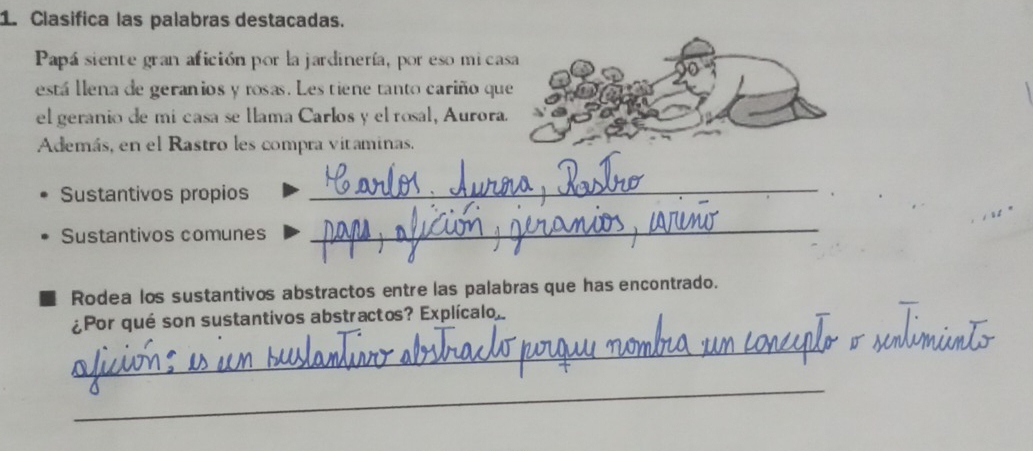 1. Clasifica las palabras destacadas.
Papá siente gran afición por la jardinería, por eso mi casa
está llena de geranios y rosas. Les tiene tanto cariño que
el geranio de mi casa se llama Carlos y el rosal, Aurora.
Además, en el Rastro les compra vitaminas.
• Sustantivos propios ▶ Carlos. Aurora, Rastro
• Sustantivos comunes ▶ papa, afición, geranios, cariño
■ Rodea los sustantivos abstractos entre las palabras que has encontrado.
¿Por qué son sustantivos abstractos? Explícalo.
afición: es un sustantivo abstracto porque nombra un concepto o sentimiento